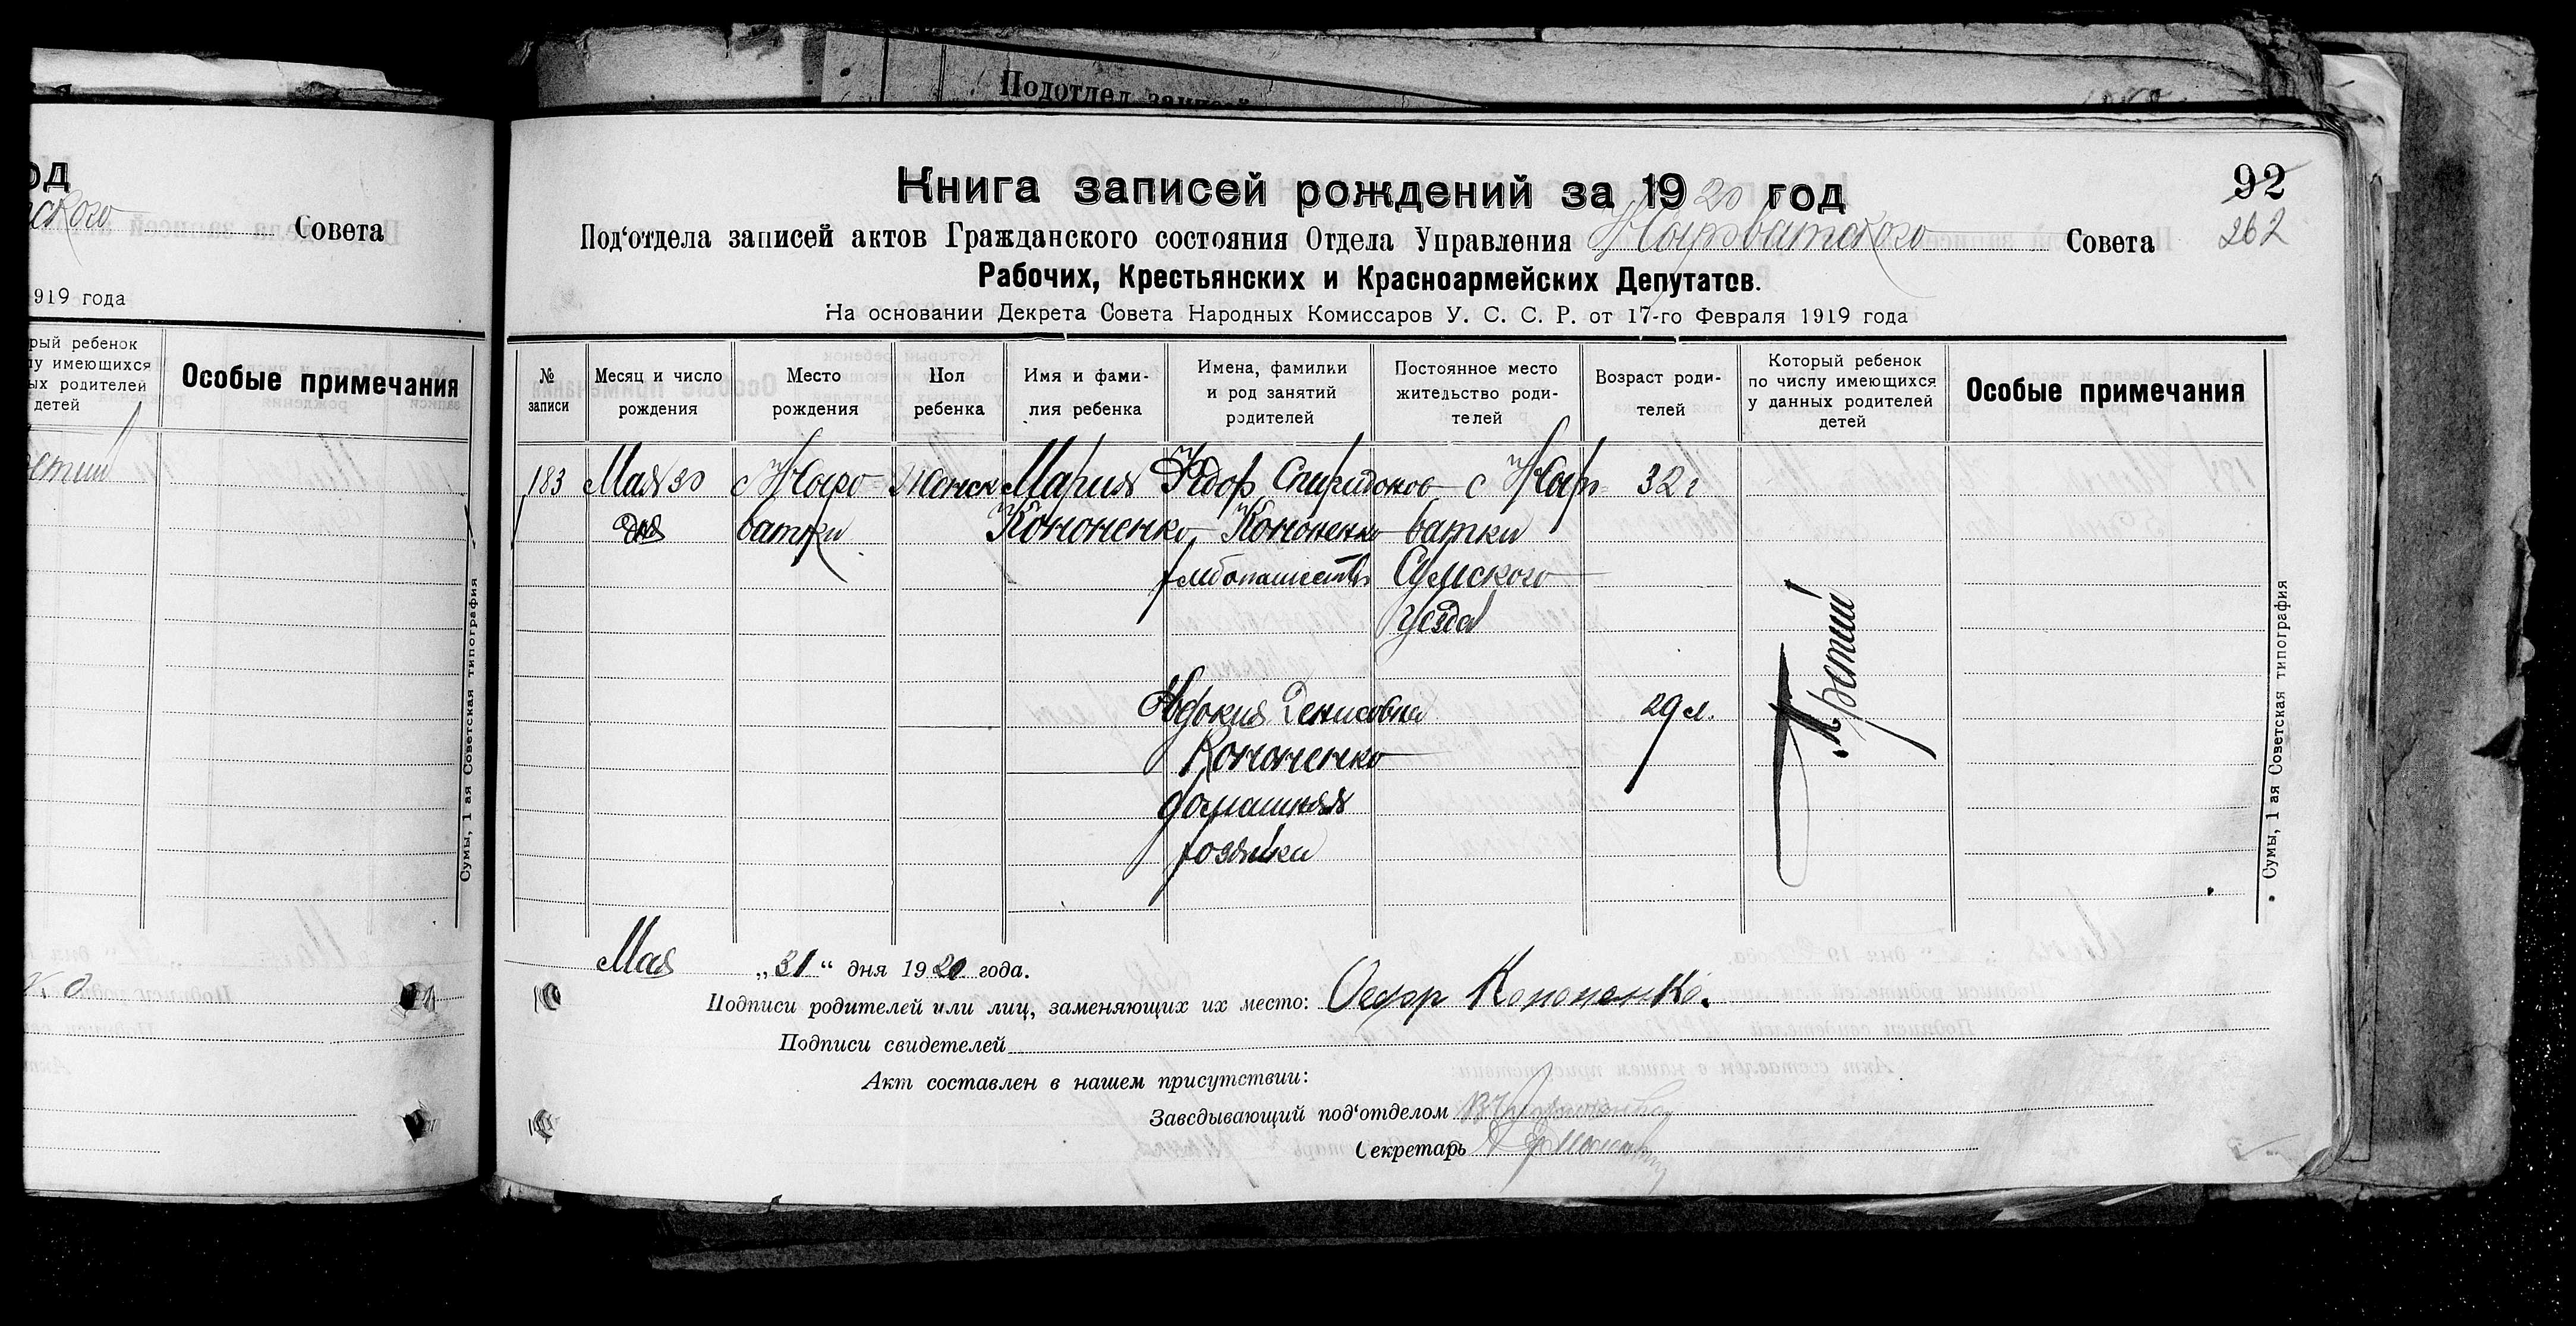 Подотдел записей
од
ского Совета
919 года
рый ребенок
лу имеющихся
ых родителей
детей
Особые примечания
етий
Сумы, 1 ая Советская типография
92
262
Книга записей рождений за 1920 год
Под‘отдела записей актов Гражданского состояния Отдела Управления Совета
Рабочих, Крестьянских и Красноармейских Депутатов.
На основании Декрета Совета Народных Комиссаров У. С. С. Р. от 17-го Февраля 1919 года
№ записи
Месяц и число рождения
Место рождения
Пол ребенка
Имя и фами-
лия ребенка
Имена, фамилии
и род занятий
родителей
Постоянное место
жительство роди-
телей
Возраст роди-
телей
Который ребенок
по числу имеющихся
у данных родителей
детей
Особые примечания
183 Мая 30 с Женск Мария Федор Спиридонов с 32 г
дня ватки Кононенко Кононенко ватки
хлебопашеств Сумского
уезда
Третий
Евдокия Денисовна 29 л.
Кононенко
домашняя
хозяйка
Сумы, 1 ая Советская типография
Мая „31“ дня 1920 года.
Подписи родителей или лиц, заменяющих их место: Федор Кононенко.
Подписи свидетелей
Акт составлен в нашем присутствии:
Заведывающий под‘отделом
Секретарь